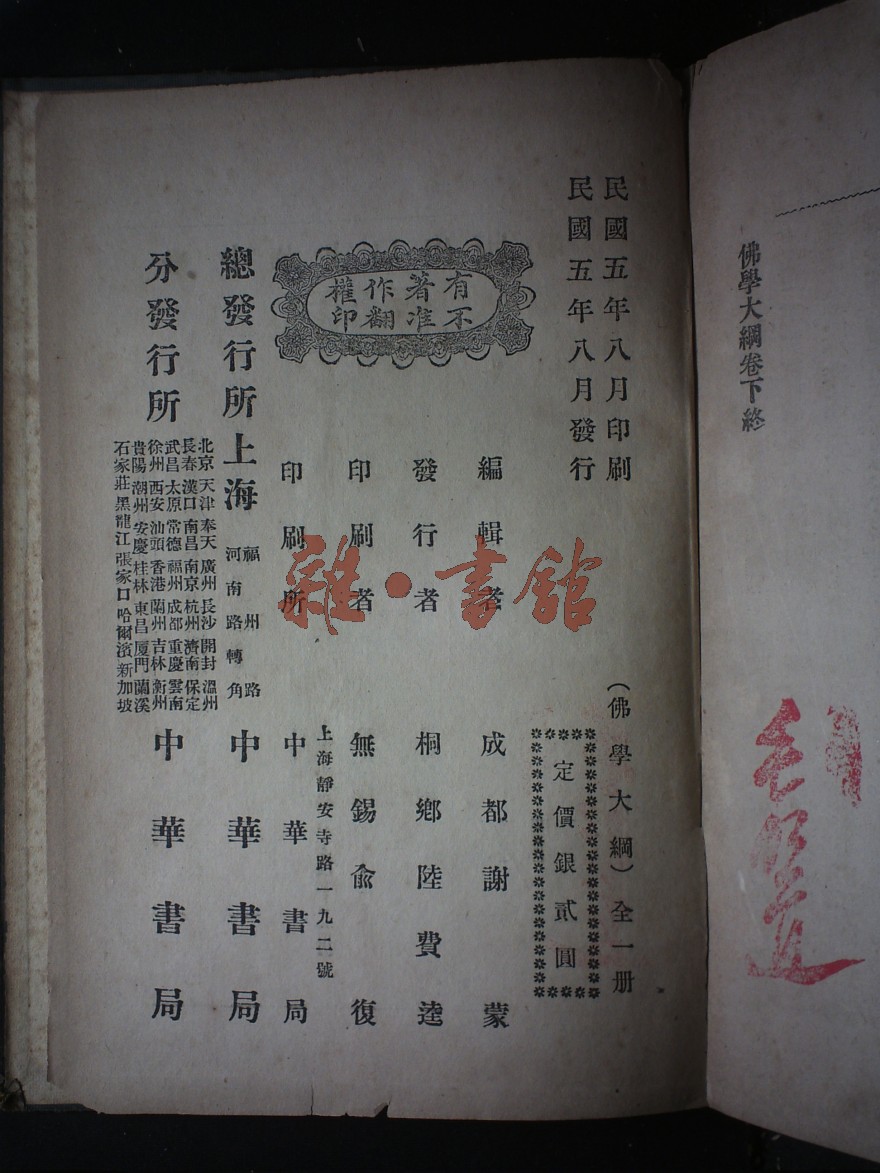 佛學大綱卷下終
民國五年八月印刷
民國五年八月發行
(佛學大綱)全一册
定價銀貳圓
有著作權
不准翻印
編輯者 成都謝蒙
發行者 桐鄉陸費逵
印刷者 無錫俞復
印刷所 上海靜安寺路一九二號 中華書局
總發行所 上海 福州路河南路轉角 中華書局
分發行所 中華書局
北京 天津 奉天 廣州 長沙 開封 溫州
長春 漢口 南昌 南京 杭州 濟南 保定
武昌 太原 常德 福州 成都 重慶 雲南
徐州 西安 汕頭 香港 蘭州 吉林 衡州
貴陽 潮州 安慶 桂林 東昌 厦門 蘭溪
石家莊 黑龍江 張家口 哈爾濱 新加坡
雜·書館